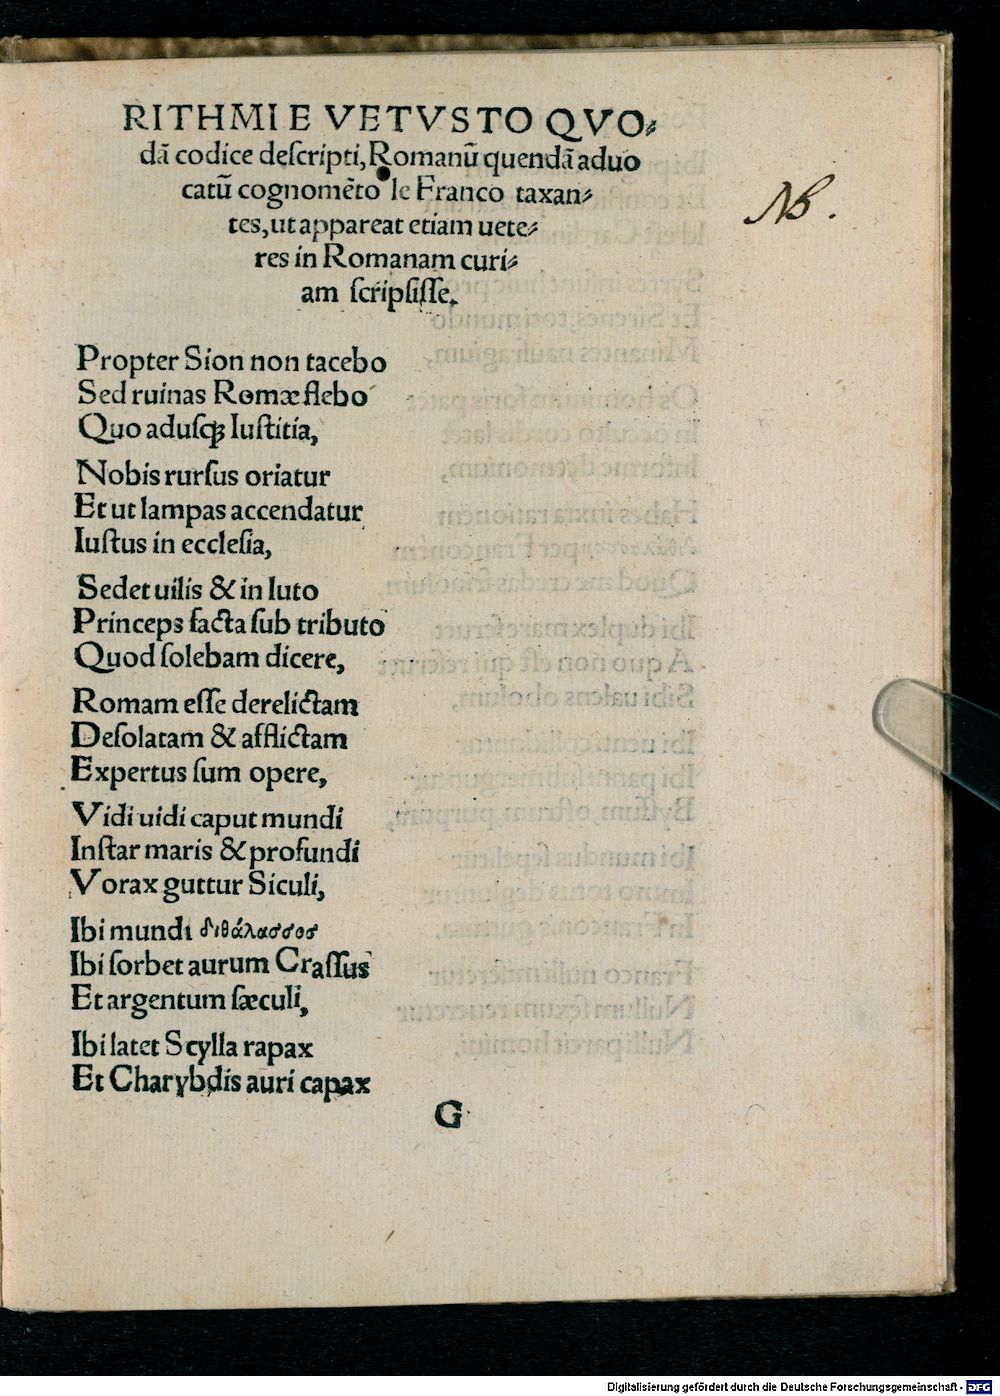 RITHMI E VETVSTO QVO⸗
dā codice deſcripti, Romanū quendā aduo
catū cognomēto le Franco taxan⸗
tes, ut appareat etiam uete⸗
res in Romanam curi⸗
am ſcripſiſſe.
NB.
Propter Sion non tacebo
Sed ruinas Romæ flebo
Quo aduſqꝫ Iuſtitia,
Nobis rurſus oriatur
Et ut lampas accendatur
Iuſtus in eccleſia,
Sedet uilis & in luto
Princeps facta ſub tributo
Quod ſolebam dicere,
Romam eſſe derelictam
Deſolatam & afflictam
Expertus ſum opere,
Vidi uidi caput mundi
Inſtar maris & profundi
Vorax guttur Siculi,
Ibi mundi διθάλασσος
Ibi ſorbet aurum Craſſus
Et argentum ſæculi,
Ibi latet Scylla rapax
Et Charybdis auri capax
G
Digitalisierung gefördert durch die Deutsche Forschungsgemeinschaft - DFG